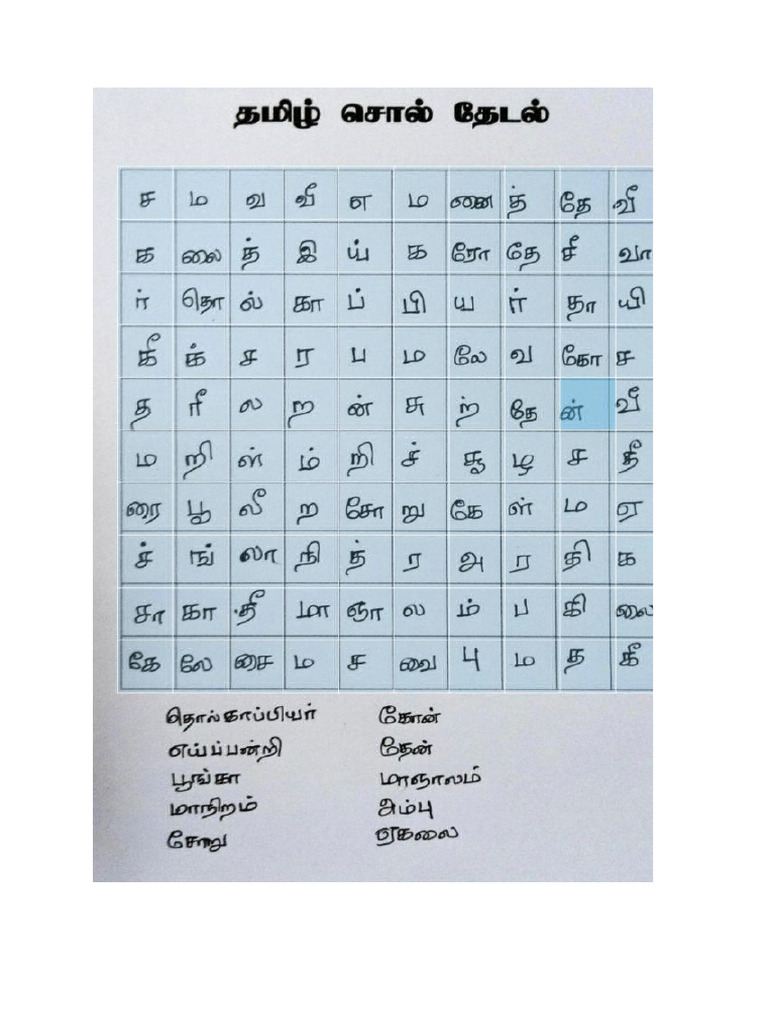 தமிழ் சொல் தேடல்
ச ம வ வீ எ ம ணை த் தே வீ
க லை த் இ ய் க ரோ தே சீ வா
ர் தொ ல் கா ப் பி ய ர் தா யி
கீ க் ச ர ப ம லே வ கோ ச
த ரீ ல ற ன் சு ற் தே ன் வீ
ம றி ள் ம் றி ச் சூ ழ ச தீ
ரை பூ லீ ற சோ று கே ள் ம ஏ
ச் ங் லா நி த் ர அ ர தி க
சா கா தீ மா ஞா ல ம் ப கி லை
கே லே சை ம ச வை பு ம த கீ
தொல்காப்பியர் கோன்
எய்ப்பன்றி தேன்
பூங்கா மாஞாலம்
மாநிறம் அம்பு
சோறு ஏகலை